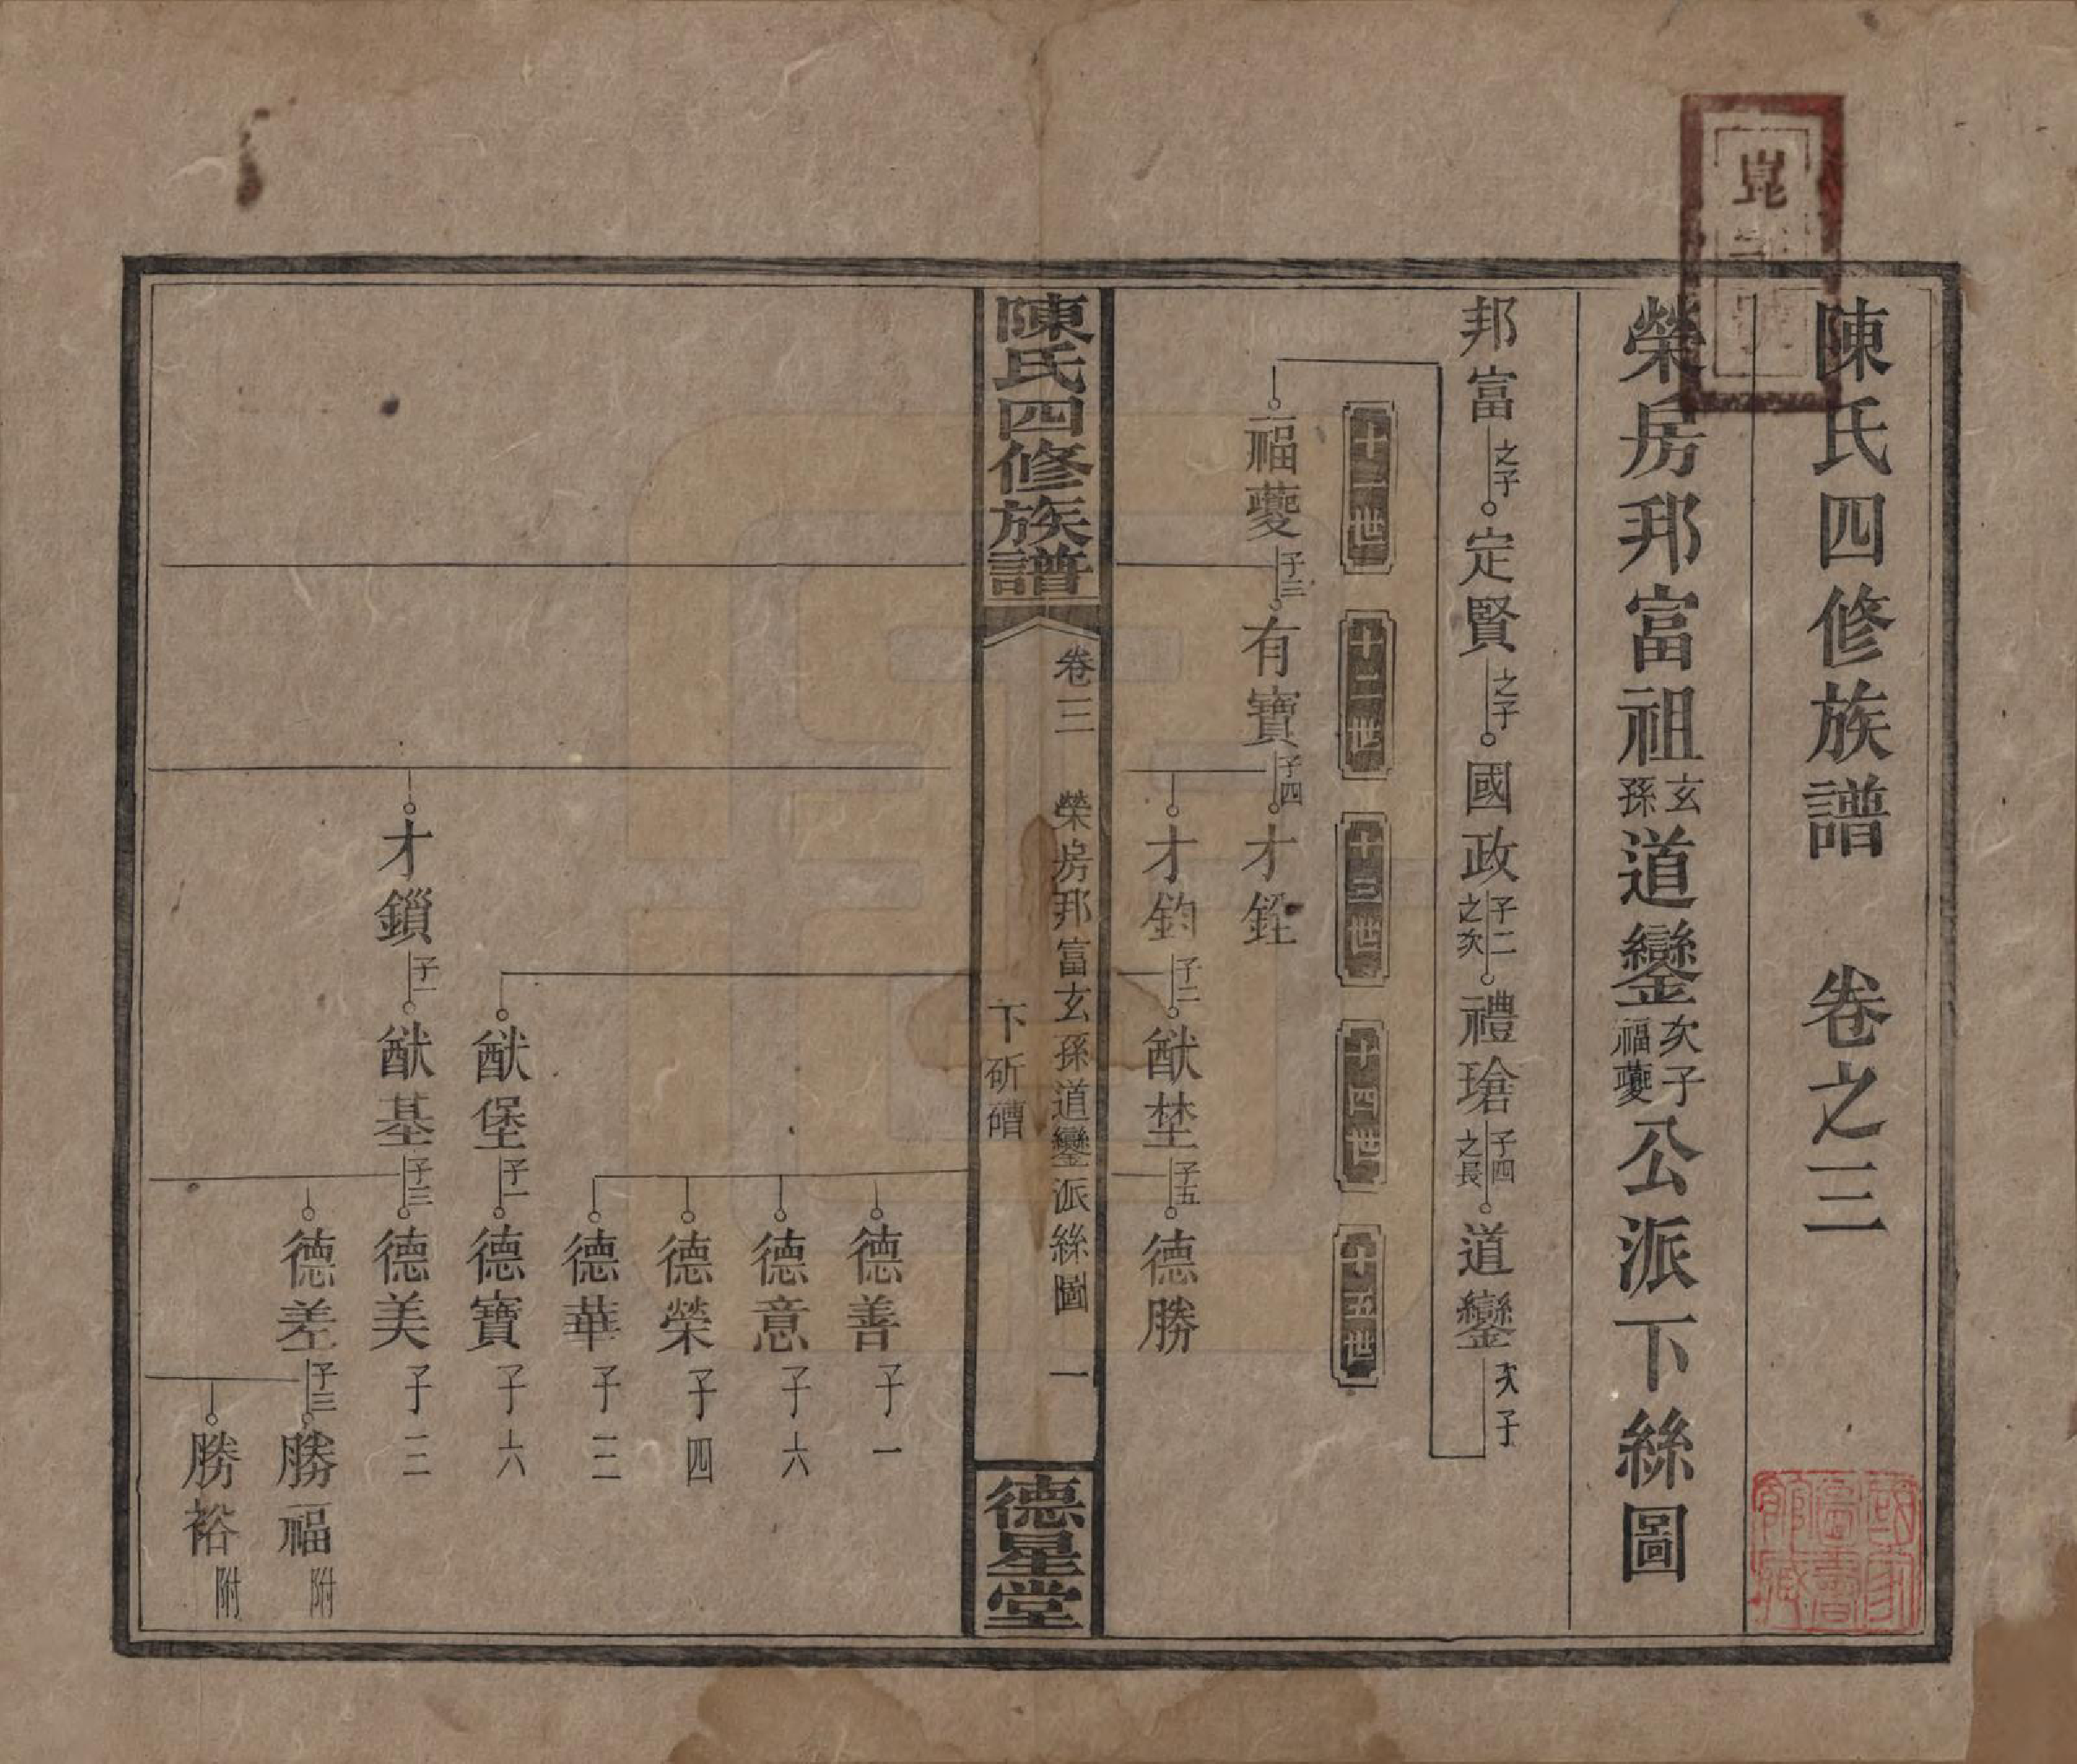 陳氏四修族譜 卷之三
榮房邦富祖玄孫道鑾次子福夔公派下絲圖
邦富之子定賢之子國政子二之次禮瑲子四之長道鑾次子
十一世 十二世 十三世 十四世 十五世
福夔子三有寶子四才銓
才鈞子二猷埜子五德勝
陳氏四修族譜
卷三 榮房邦富玄孫道鑾派絲圖 一
下斫磳
德星堂
德善子一
德意子六
德榮子四
德華子三
猷堡子一德寶子六
才鎖子一猷基子三德美子三
德差子三勝福附
勝裕附
國家圖書館藏